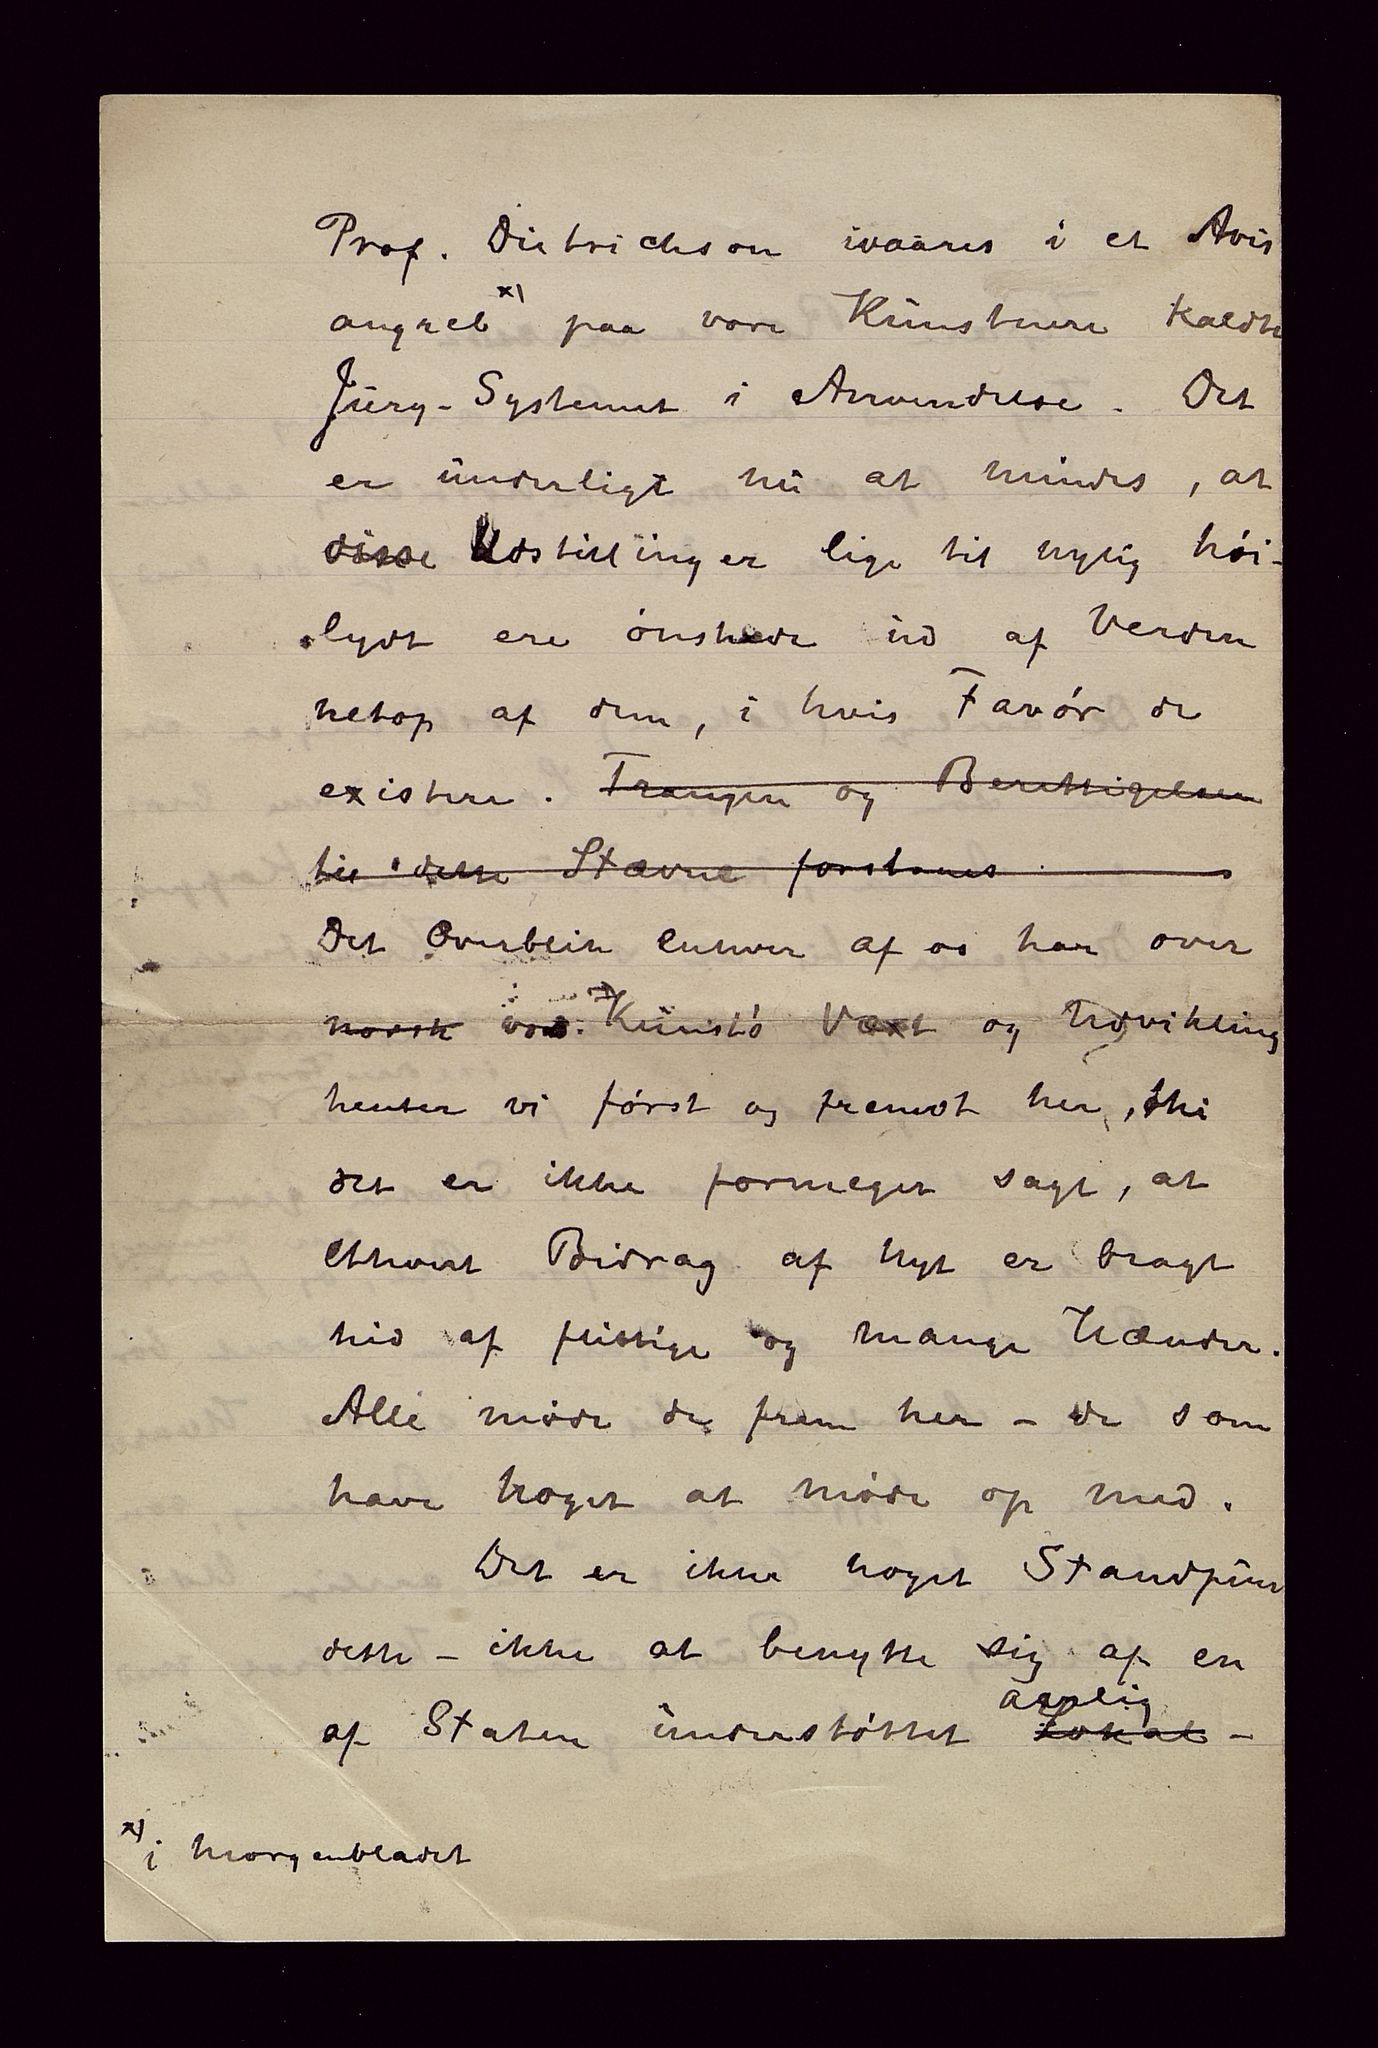 Prof. Dietrichson ivaares i et Avis
angreb x) paa vore Kunstnere kaldte
Jury-Systemet i Anvendelse. Det
er underligt nu at mindes, at
disse Udstillinger lige til nylig høi-
lydt ere ønskede ud af Verden
netop af dem, i hvis Favør de
existere. Trangen og Berettigelsen
til dette Stævne forstaaes
Det Overblik enhver af os har over
norsk vor Kunsts Væxt og Udvikling
henter vi først og fremst her, thi
det er ikke formeget sagt, at
ethvert Bidrag af Nyt er bragt
hid af flittige og mange Hænder.
Alle møde de frem her – de som
have noget at møde op med.
Det er ikke noget Standpun
dette – ikke at benytte sig af en
aarlig
af Staten understøttet Lokal –
x) i Morgenbladet